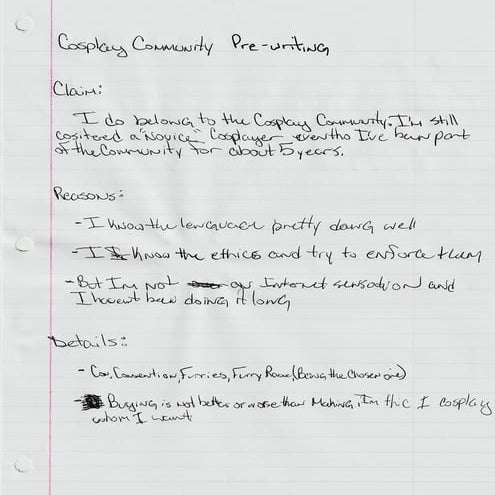 Cosplay Community Pre-writing
Claim:
I do belong to the Cosplay Community. I'm still
cositered a "Novice" Cosplayer eventho I've been part
of the Community for about 5 years.
Reasons:
- I know the pretty dang well
- I know the ethics and try to enforce them
- But I'm not an Internet sensation and
I havent been doing it long
Details:
- Con, Convention, Furries, Furry Rave, (Being the Chosen one)
- Buying is not better or worse than Making, I'm thic I cosplay
whom I want